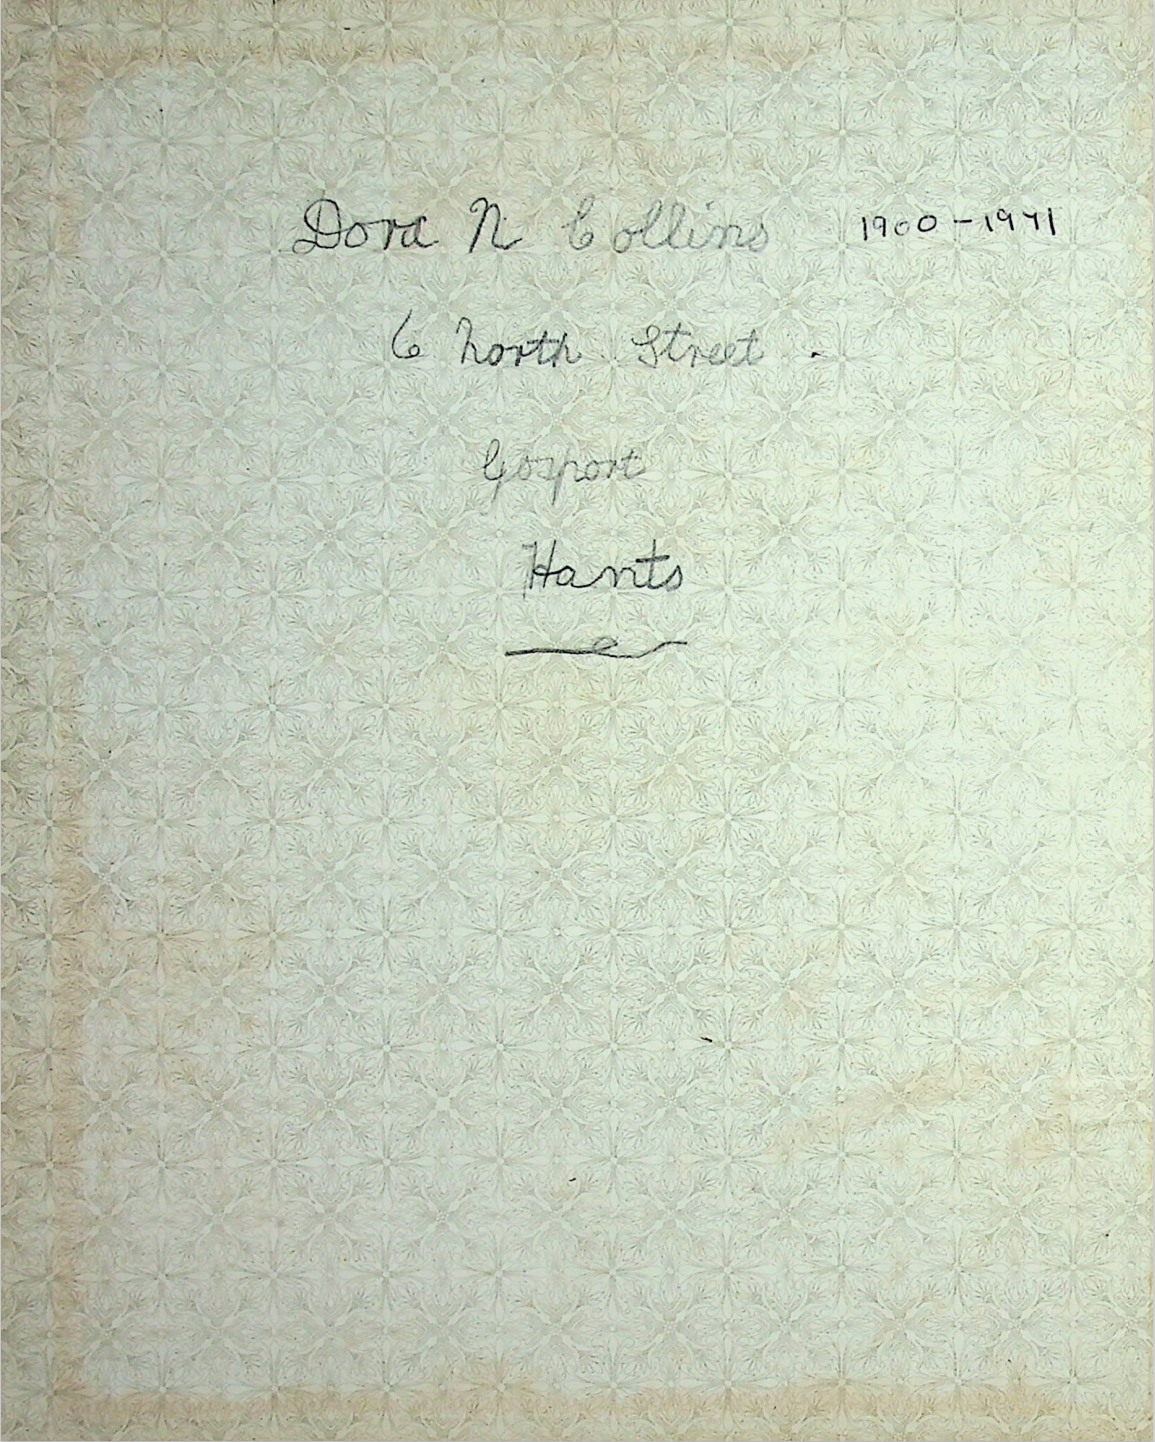 Dora N. Collins 1900-1971
6 North Street
Gosport
Hants